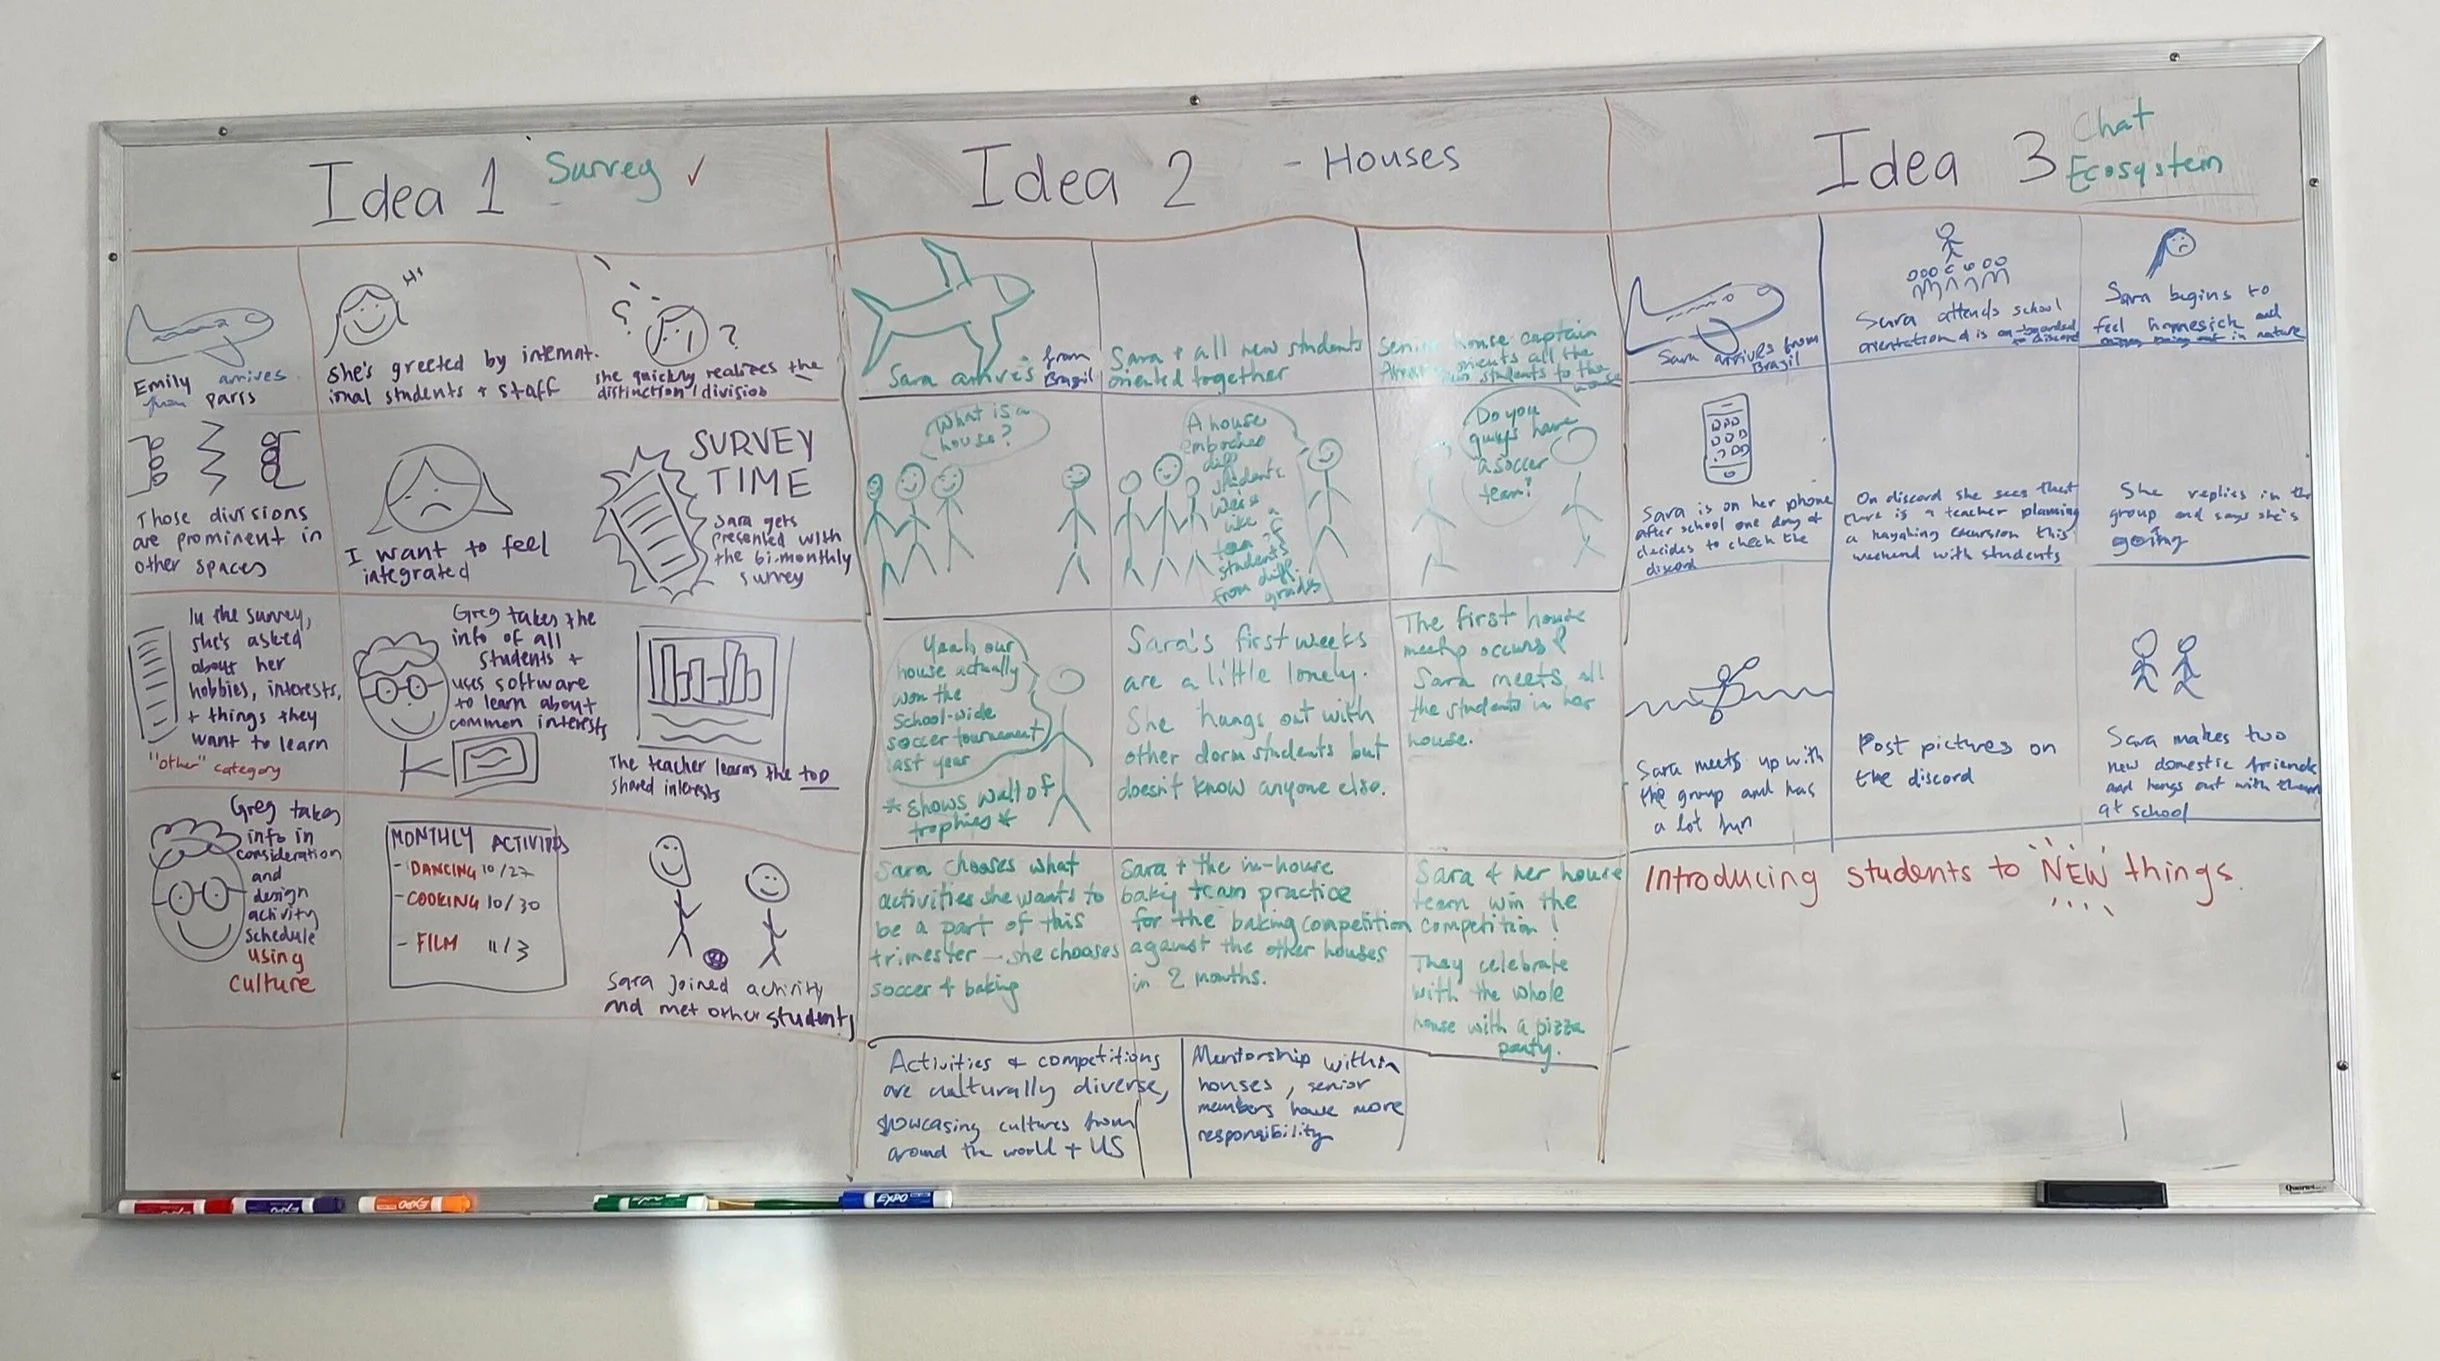 Idea 1 Survey ✓
Emily arrives
from paris
Hi
She's greeted by internat.
ional students + staff
? ?
she quickly realizes the
distinction / division
Those divisions
are prominent in
other spaces
I want to feel
integrated
SURVEY
TIME
Sara gets
presented with
the bi-monthly
survey
In the survey,
she's asked
about her
hobbies, interests,
+ things they
want to learn
"other" category
Greg takes the
info of all
students +
uses software
to learn about
common interests
The teacher learns the top
shared interests
Greg takes
info in
consideration
and
design
activity
schedule
using
culture
MONTHLY ACTIVITIES
- DANCING 10/27
- COOKING 10/30
- FILM 11/3
Sara joined activity
and met other students
Idea 2 - Houses
Sara arrives from
Brazil
Sara + all new students
oriented together
Senior house captain
orients all the
students to the
house
What is a
house?
A house
embodies
diff
students
like a
team of
students
from diff.
grades
Do you
guys have
a soccer
team?
Yeah, our
house actually
won the
school-wide
soccer tournament
last year
*shows wall of
trophies*
Sara's first weeks
are a little lonely.
She hangs out with
other dorm students but
doesn't know anyone else.
The first house
meetup occurs &
Sara meets all
the students in her
house.
Sara chooses what
activities she wants to
be a part of this
trimester - she chooses
soccer + baking
Sara + the in-house
baking team practice
for the baking competition
against the other houses
in 2 months.
Sara & her house
team win the
competition!
They celebrate
with the whole
house with a pizza
party.
Activities & competitions
are culturally diverse,
showcasing cultures from
around the world + US
Mentorship within
houses, senior
members have more
responsibility
Idea 3 Chat
Ecosystem
Sara arrives from
Brazil
Sara attends school
orientation & is on-boarded
to discord
Sara begins to
feel homesick and
being out in nature
Sara is on her phone
after school one day &
decides to check the
discord
On discord she sees that
there is a teacher planning
a kayaking excursion this
weekend with students
She replies in the
group and says she's
going
Sara meets up with
the group and has
a lot fun
Post pictures on
the discord
Sara makes two
new domestic friends
and hangs out with them
at school
Introducing students to NEW things.
EXPO
EXPO
EXPO
Quartet